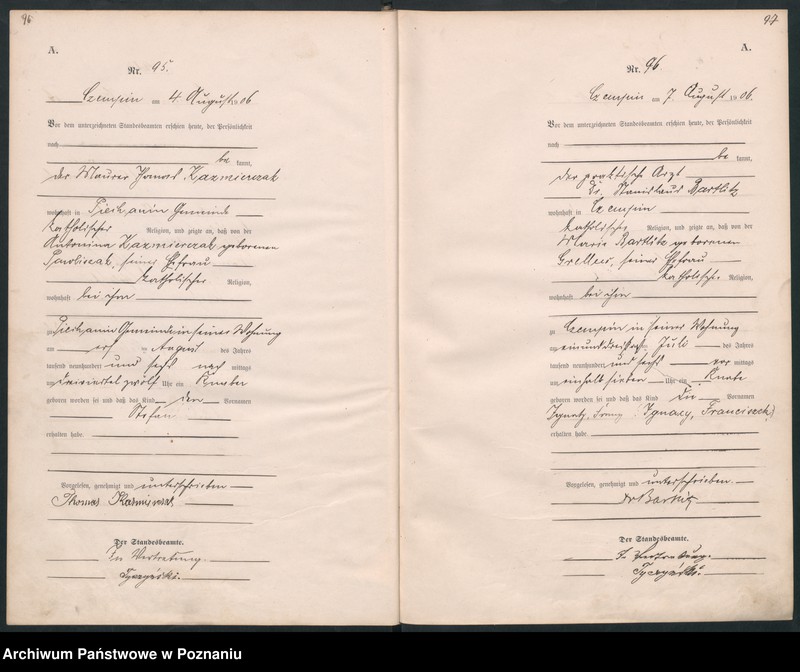 96
A.
Nr. 95.
Czempin am 4. August 1906
Vor dem unterzeichneten Standesbeamten erschien heute, der Persönlichkeit
nach
be kannt,
der Maurer Thomas Kazmierczak
wohnhaft in Piechanin Gemeinde
katholischer Religion, und zeigte an, daß von der
Antonina Kazmierczak geborenen
seiner Ehefrau
katholischer Religion,
wohnhaft bei ihm
zu Piechanin Gemeinde in seiner Wohnung
am August des Jahres
tausend neunhundert und sechs nach mittags
um dreiviertel zwölf Uhr ein Knabe
geboren worden sei und daß das Kind den Vornamen
Stefan
erhalten habe
Vorgelesen, genehmigt und unterschrieben
Thomas Kaźmierczak
Der Standesbeamte.
In Vertretung.
97
A.
Nr. 96.
Czempin am 7. August 1906.
Vor dem unterzeichneten Standesbeamten erschien heute, der Persönlichkeit
nach
be kannt,
der praktische Arzt
Dr. Stanislaus Bartlitz
wohnhaft in Czempin
katholischer Religion, und zeigte an, daß von der
Maria Bartlitz geborenen
seiner Ehefrau
katholischer Religion,
wohnhaft bei ihm
zu Czempin in seiner Wohnung
am einunddreißigsten Juli des Jahres
tausend neunhundert und sechs vor mittags
um einhalb sieben Uhr ein Knabe
geboren worden sei und daß das Kind die Vornamen
Ignatz, Franz (Ignacy, Franciszek)
erhalten habe
Vorgelesen, genehmigt und unterschrieben.
Der Standesbeamte.
In Vertretung.
Archiwum Państwowe w Poznaniu